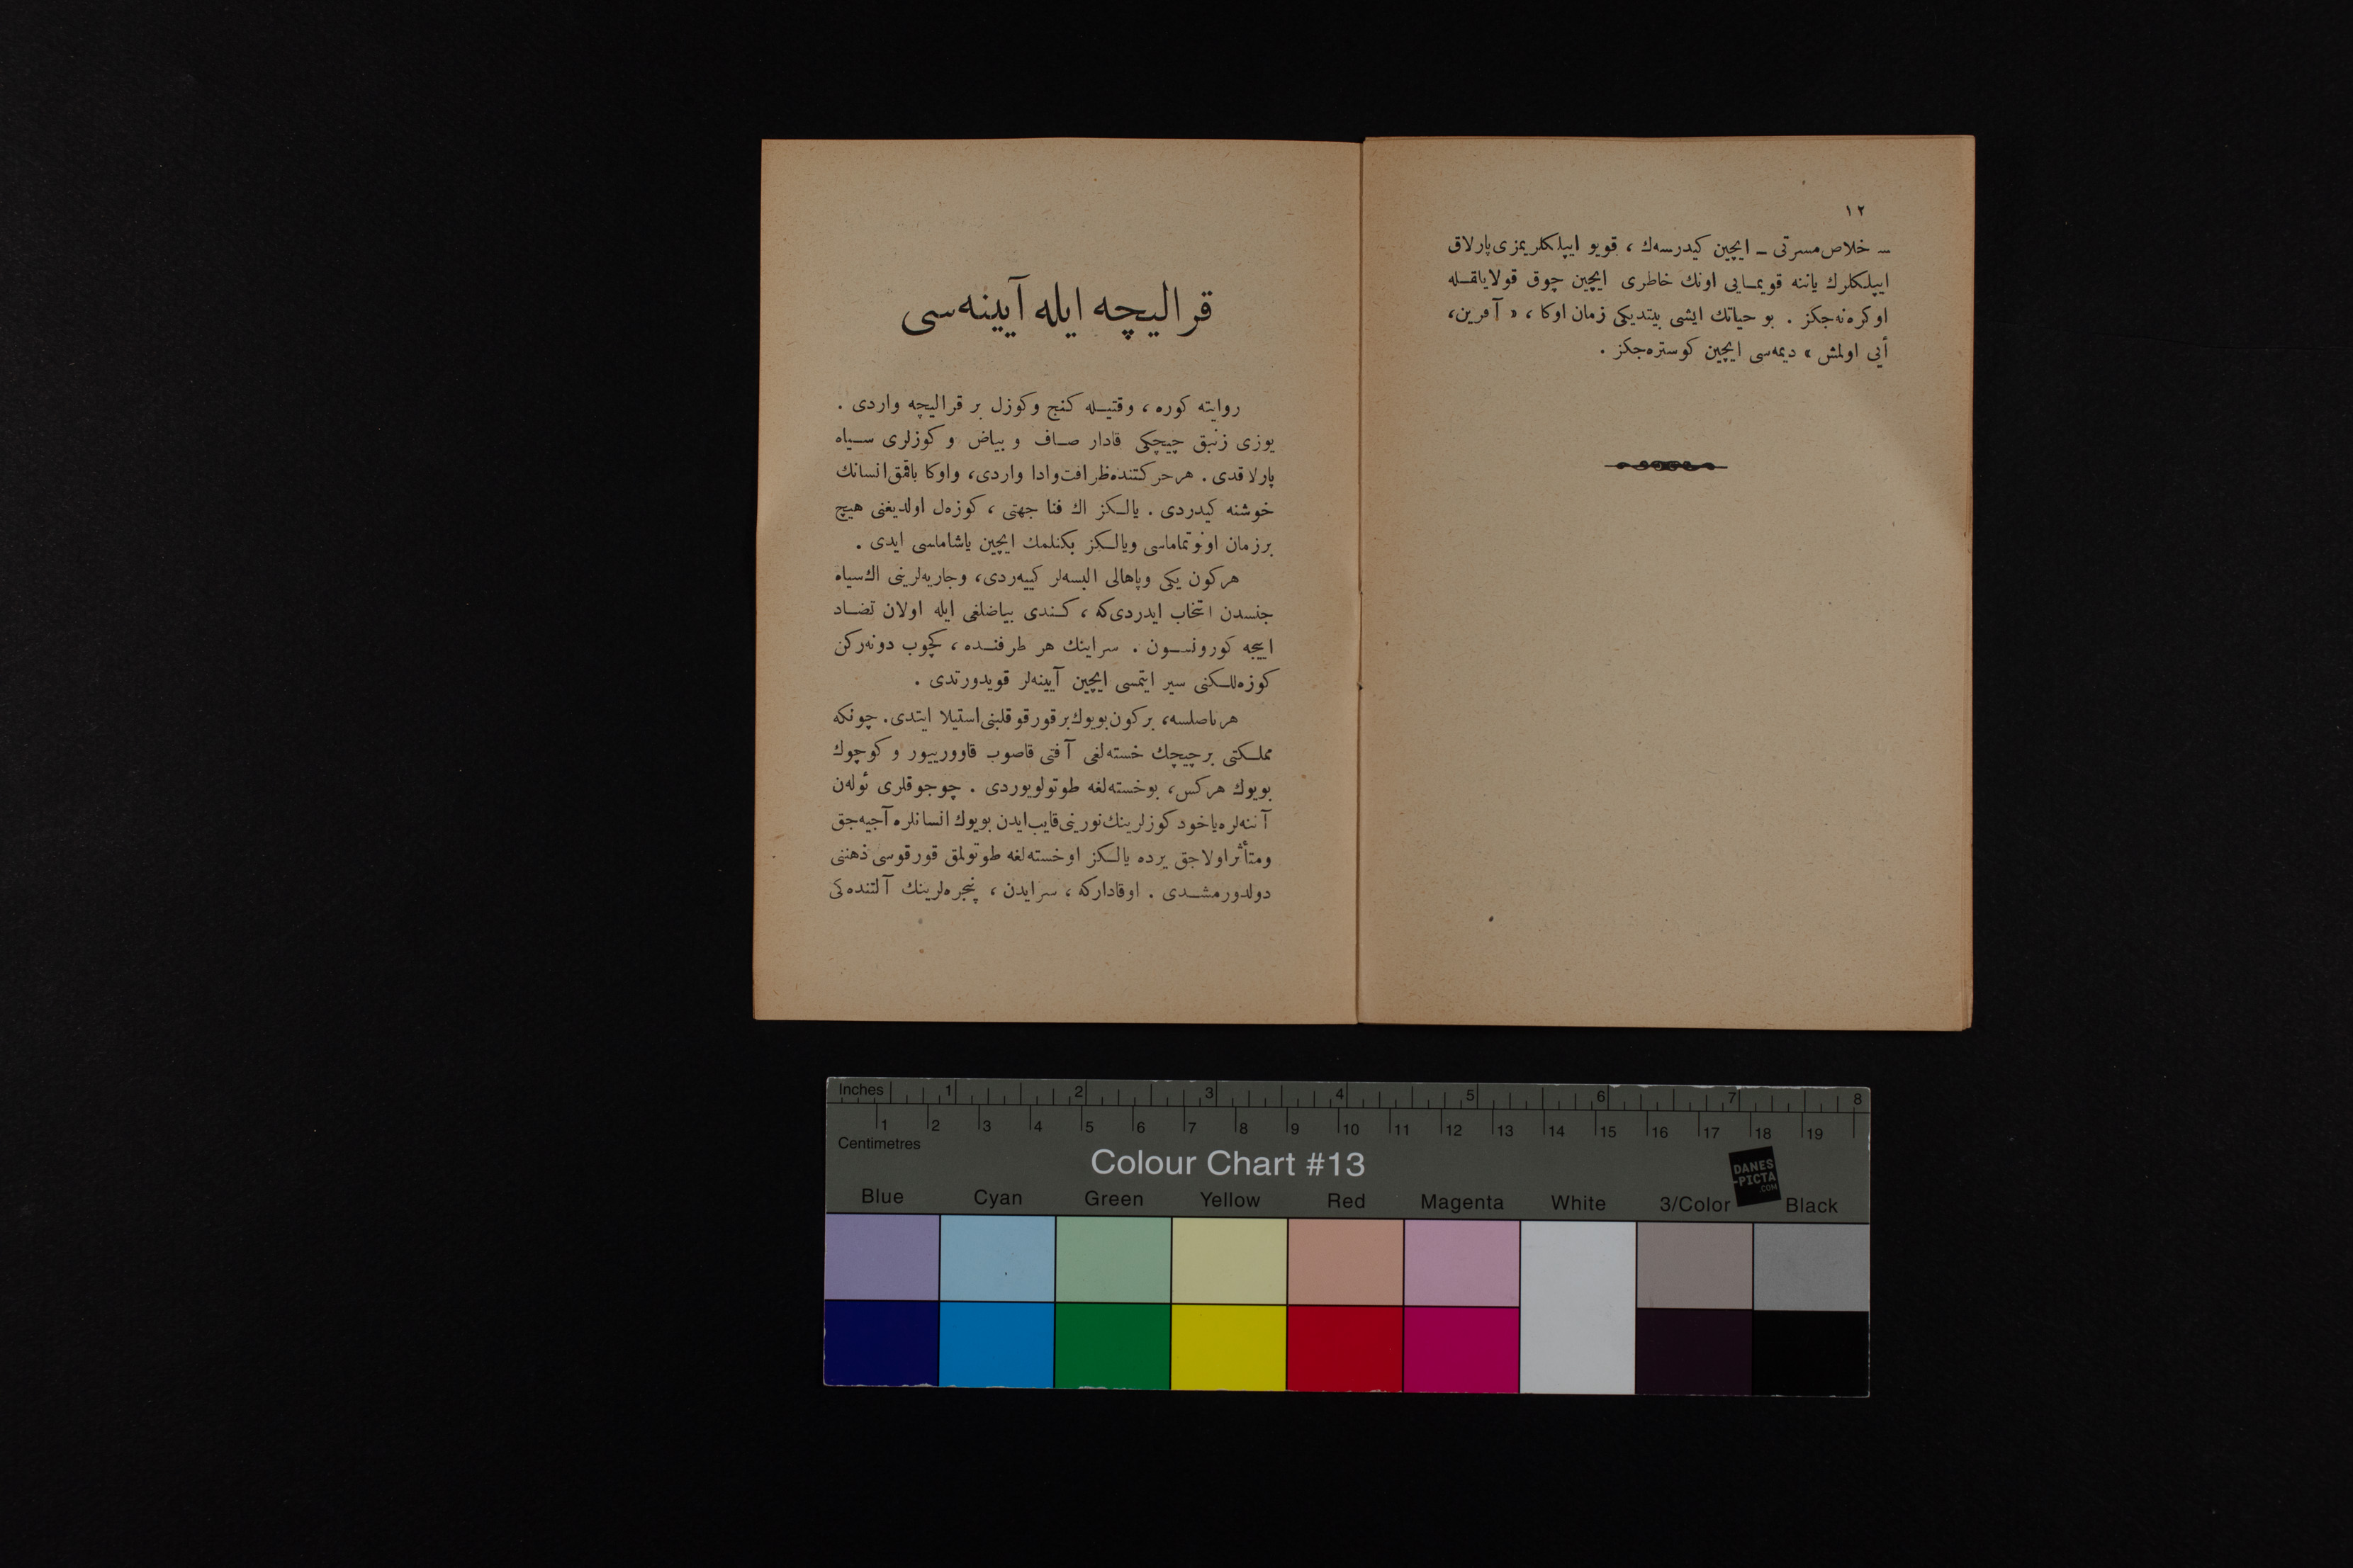 ١٢
ـ خلاص مسرتی ـ ایچین کیدرسه‌ك ، قویو ایپلکلریمزی پارلاق
ایپلکلرك یاننه قویمـایی اونك خاطری ایچین چوق قولایلقـله
اوکره‌نه‌جکز . بو حیاتك ایشی بیتدیکی زمان اوکا ، « آفرین،
أیی اولمش » دیمه‌سی ایچین کوستره‌جکز .
قرالیچه ایله آیینه‌سی
روایته کوره ، وقتیـله کنج وکوزل بر قرالیچه واردی .
یوزی زنبق چیچکی قادار صـاف و بیاض و کوزلری سـیاه
پارلاقدی . هر حرکتنده ظرافت وادا واردی، واوکا باقمق انسانك
خوشنه کیدردی . یالـکز اك فنا جهتی ، کوزه‌ل اولدیغنی هیچ
بر زمان اونوتماماسی ویالـکز بکنلمك ایچین یاشاماسی ایدی .
هرکون یکی وپاهالی البسه‌لر کییه‌ردی، وجاریه‌لرینی اك سیاه
جنسدن انتخاب ایدردی که ، کـندی بیاضلغی ایله اولان تضـاد
اییجه کورونسـون . سراینك هر طرفنـده ، کچوب دونه‌رکن
کوزه‌للـکنی سیر ایتمسی ایچین آیینه‌لر قویدورتدی .
هر ناصلسه، بر کون بویوك بر قورقو قلبنی استیلا ایتدی. چونکه
مملـکتی بر چیچك خسته‌لغی آفتی قاصوب قاوورییور و کوچوك
بویوك هرکس، بو خسته‌لغه طوتولویوردی . چوجوقلری ئوله‌ن
آننه‌لره یاخود کوزلرینك نورینی قایب ایدن بویوك انسانلره آجیه‌جق
ومتأثر اولاجق یرده یالـکز او خسته‌لغه طوتولمق قورقوسی ذهننی
دولدورمشـدی . اوقادارکه ، سرایدن ، پنجره‌لرینك آلتنده‌کی
Inches 1 2 3 4 5 6 7 8
1 2 3 4 5 6 7 8 9 10 11 12 13 14 15 16 17 18 19
Centimetres
Colour Chart #13
DANES
-PICTA
.COM
Blue Cyan Green Yellow Red Magenta White 3/Color Black